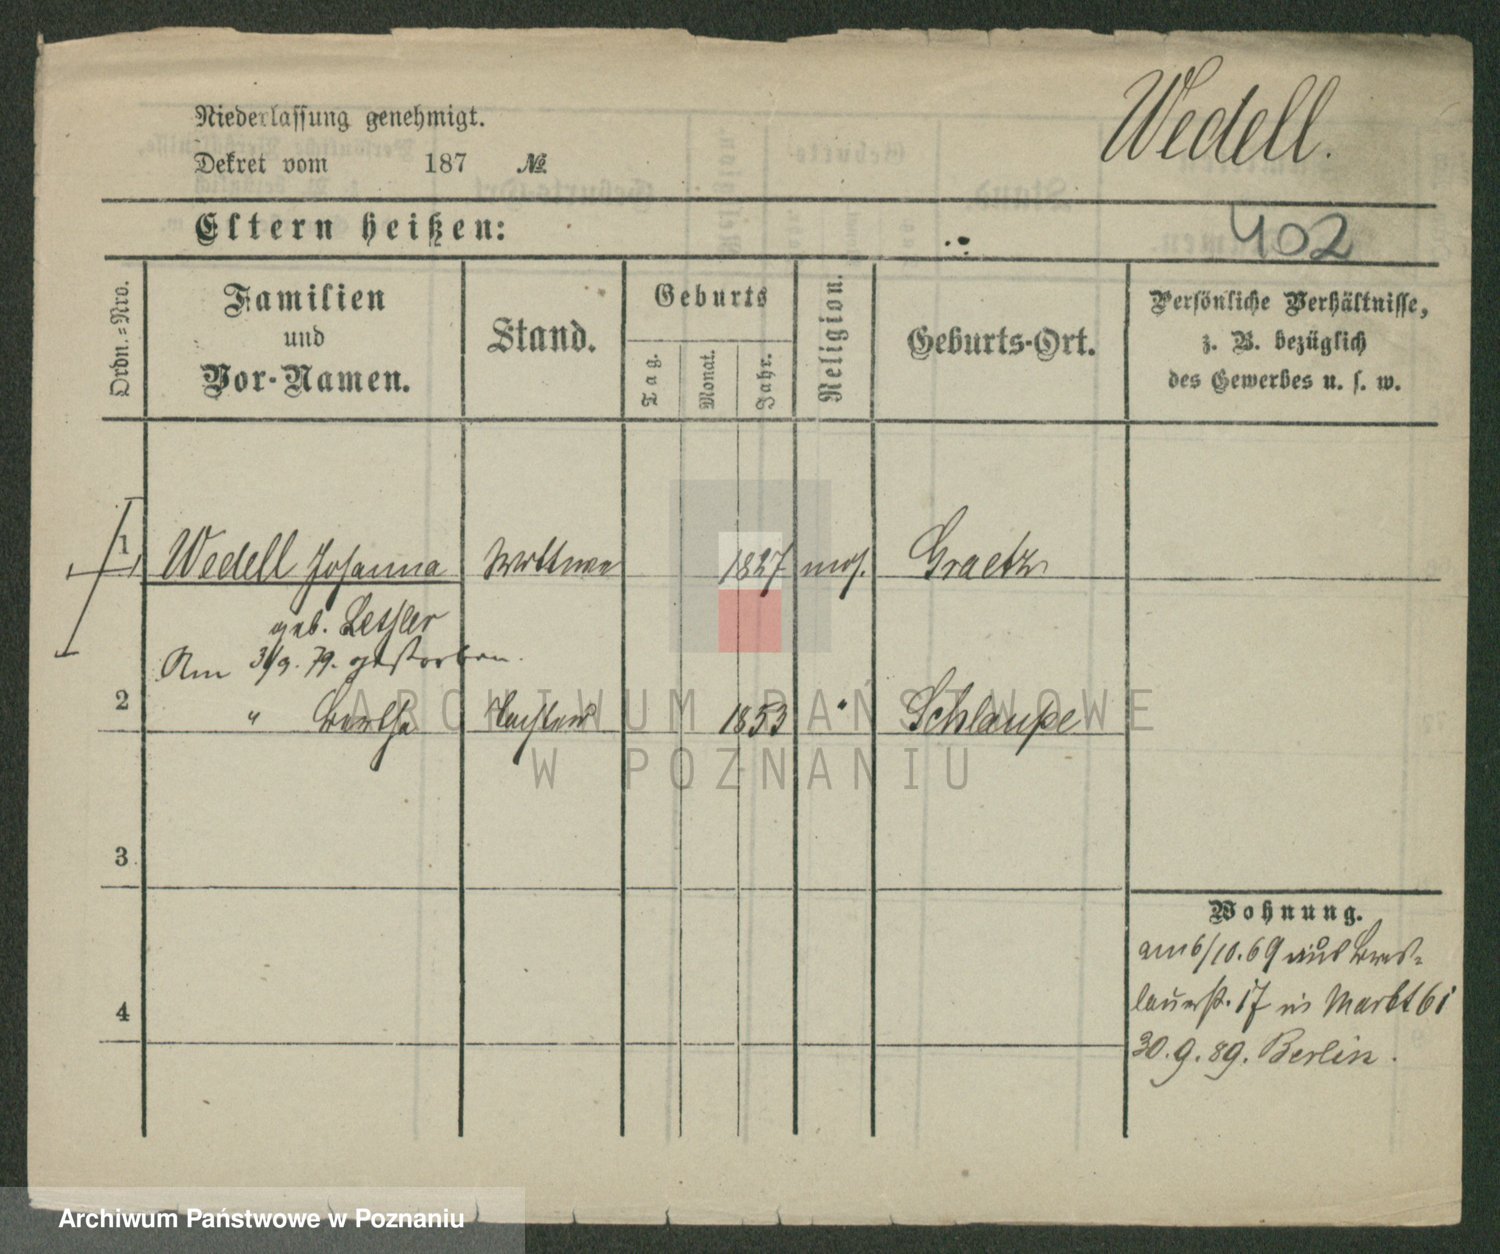 Wedell.
Niederlassung genehmigt.
Dekret vom 187 №
Eltern heißen:
402
Ordn.=Nro.
Familien
und
Vor-Namen.
Stand.
Geburts
Tag.
Monat.
Jahr.
Religion.
Geburts-Ort.
Persönliche Verhältnisse,
z. B. bezüglich
des Gewerbes u. s. w.
1 Wedell Johanna Wittwe 1827 mos. Graetz
geb.
Am 9. 79. gestorben.
2 " Bertha Tochter 1853 " Schlaupe
3
4
Wohnung.
am 6/10.69 aus Bres=
lauerst. 17 n Markt 61
30.9.89. Berlin.
ARCHIWUM PAŃSTWOWE
W POZNANIU
Archiwum Państwowe w Poznaniu